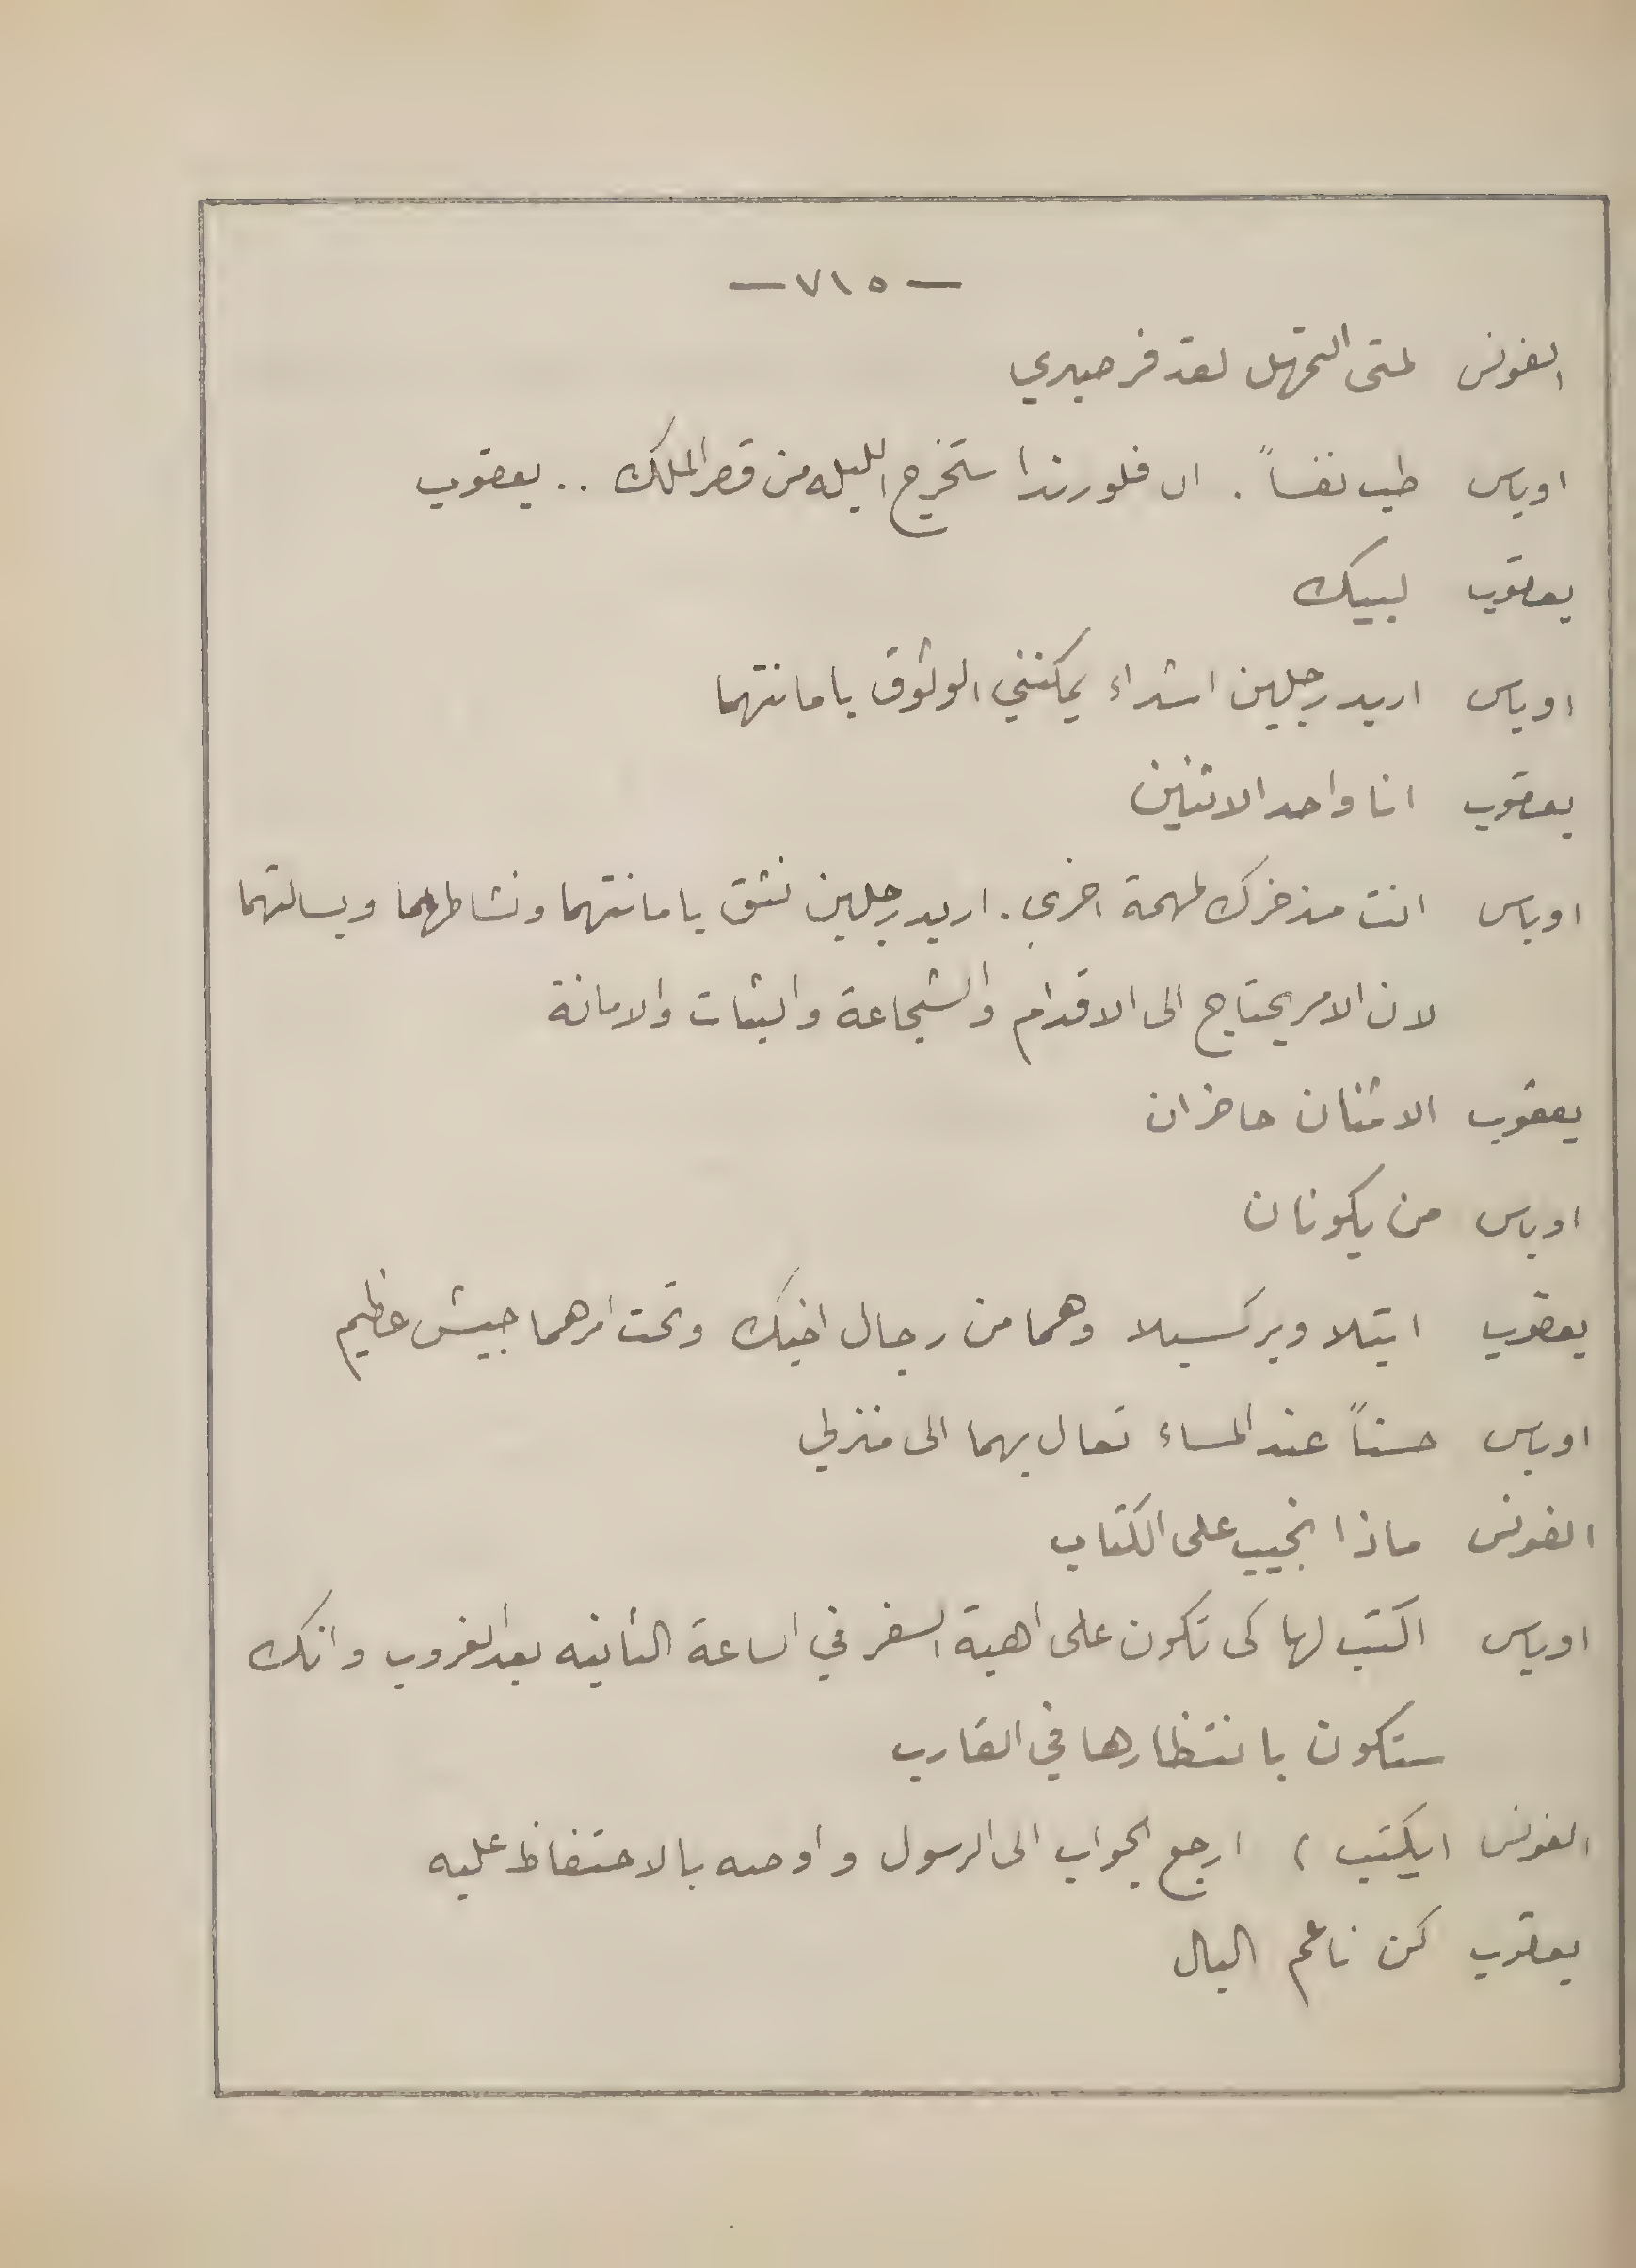 — ٧١٥ —
الفونس لمتى التمهل لقد فر صبري
اوباس طب نفساً . ان فلورندا ستخرج الليله من قصر الملك .. يعقوب
يعقوب لبيك
اوباس اريد رجلين اشداء يمكنني الوثوق بامانتهما
يعقوب انا واحد الاثنين
اوباس انت مذخرك لمهمة اخرى . اريد رجلين نثق بامانتهما ونشاطهما وبسالتهما
لان الامر يحتاج الى الاقدام والشجاعة والثبات والامانة
يعقوب الاثنان حاضران
اوباس من يكونان
يعقوب ايتلا وبركسيلا وهما من رجال اخيك وتحت امرهما جيش عظيم
اوباس حسناً عند المساء تعال بهما الى منزلي
الفونس ماذا نجيب على الكتاب
اوباس اكتب لها كى تكون على اهبة السفر في الساعة الثانيه بعد الغروب وانك
ستكون بانتظارها في القارب
الفونس (يكتب) ارجع الجواب الى الرسول واوصه بالاحتفاظ عليه
يعقوب كن ناعم البال